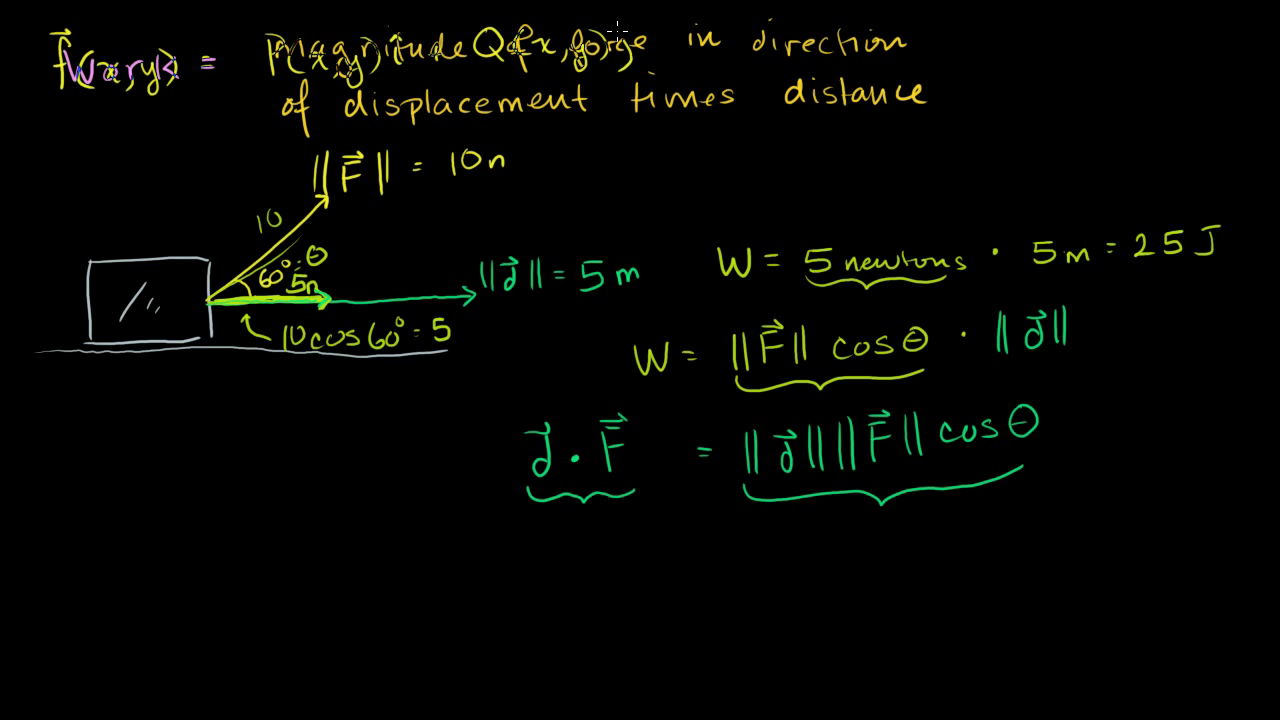 = in direction
of displacement times distance
||F⃗|| = 10n
10
60° = θ
5n
||d⃗|| = 5m
10cos60° = 5
W = 5 newtons · 5m = 25 J
W = ||F⃗|| cosθ · ||d⃗||
d⃗ · F⃗ = ||d⃗|| ||F⃗|| cosθ